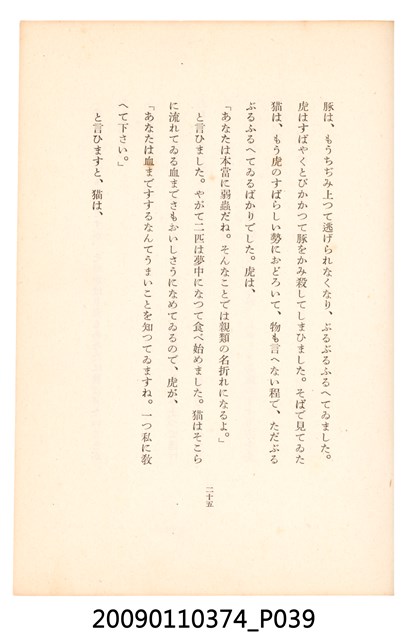 豚は、もうちぢみ上つて逃げられなくなり、ぶるぶるふるへてゐました。
虎はすばやくとびかかつて豚をかみ殺してしまひました。そばで見てゐた
猫は、もう虎のすばらしい勢におどろいて、物も言へない程で、ただぶる
ぶるふるへてゐるばかりでした。虎は、
「あなたは本當に弱蟲だね。そんなことでは親類の名折れになるよ。」
と言ひました。やがて二匹は夢中になつて食べ始めました。猫はそこら
に流れてゐる血までさもおいしさうになめてゐるので、虎が、
「あなたは血まですするなんてうまいことを知つてゐますね。一つ私に敎
へて下さい。」
と言ひますと、猫は、
二十五
20090110374_P039